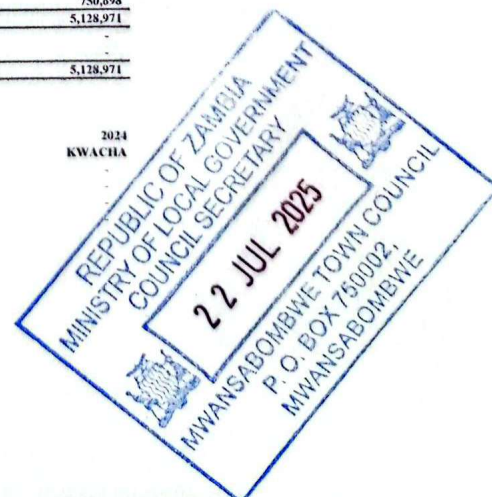 750,898
5,128,971
-
-
5,128,971
2024
KWACHA
-
-
-
REPUBLIC OF ZAMBIA
MINISTRY OF LOCAL GOVERNMENT
COUNCIL SECRETARY
22 JUL 2025
MWANSABOMBWE TOWN COUNCIL
P. O. BOX 750002,
MWANSABOMBWE